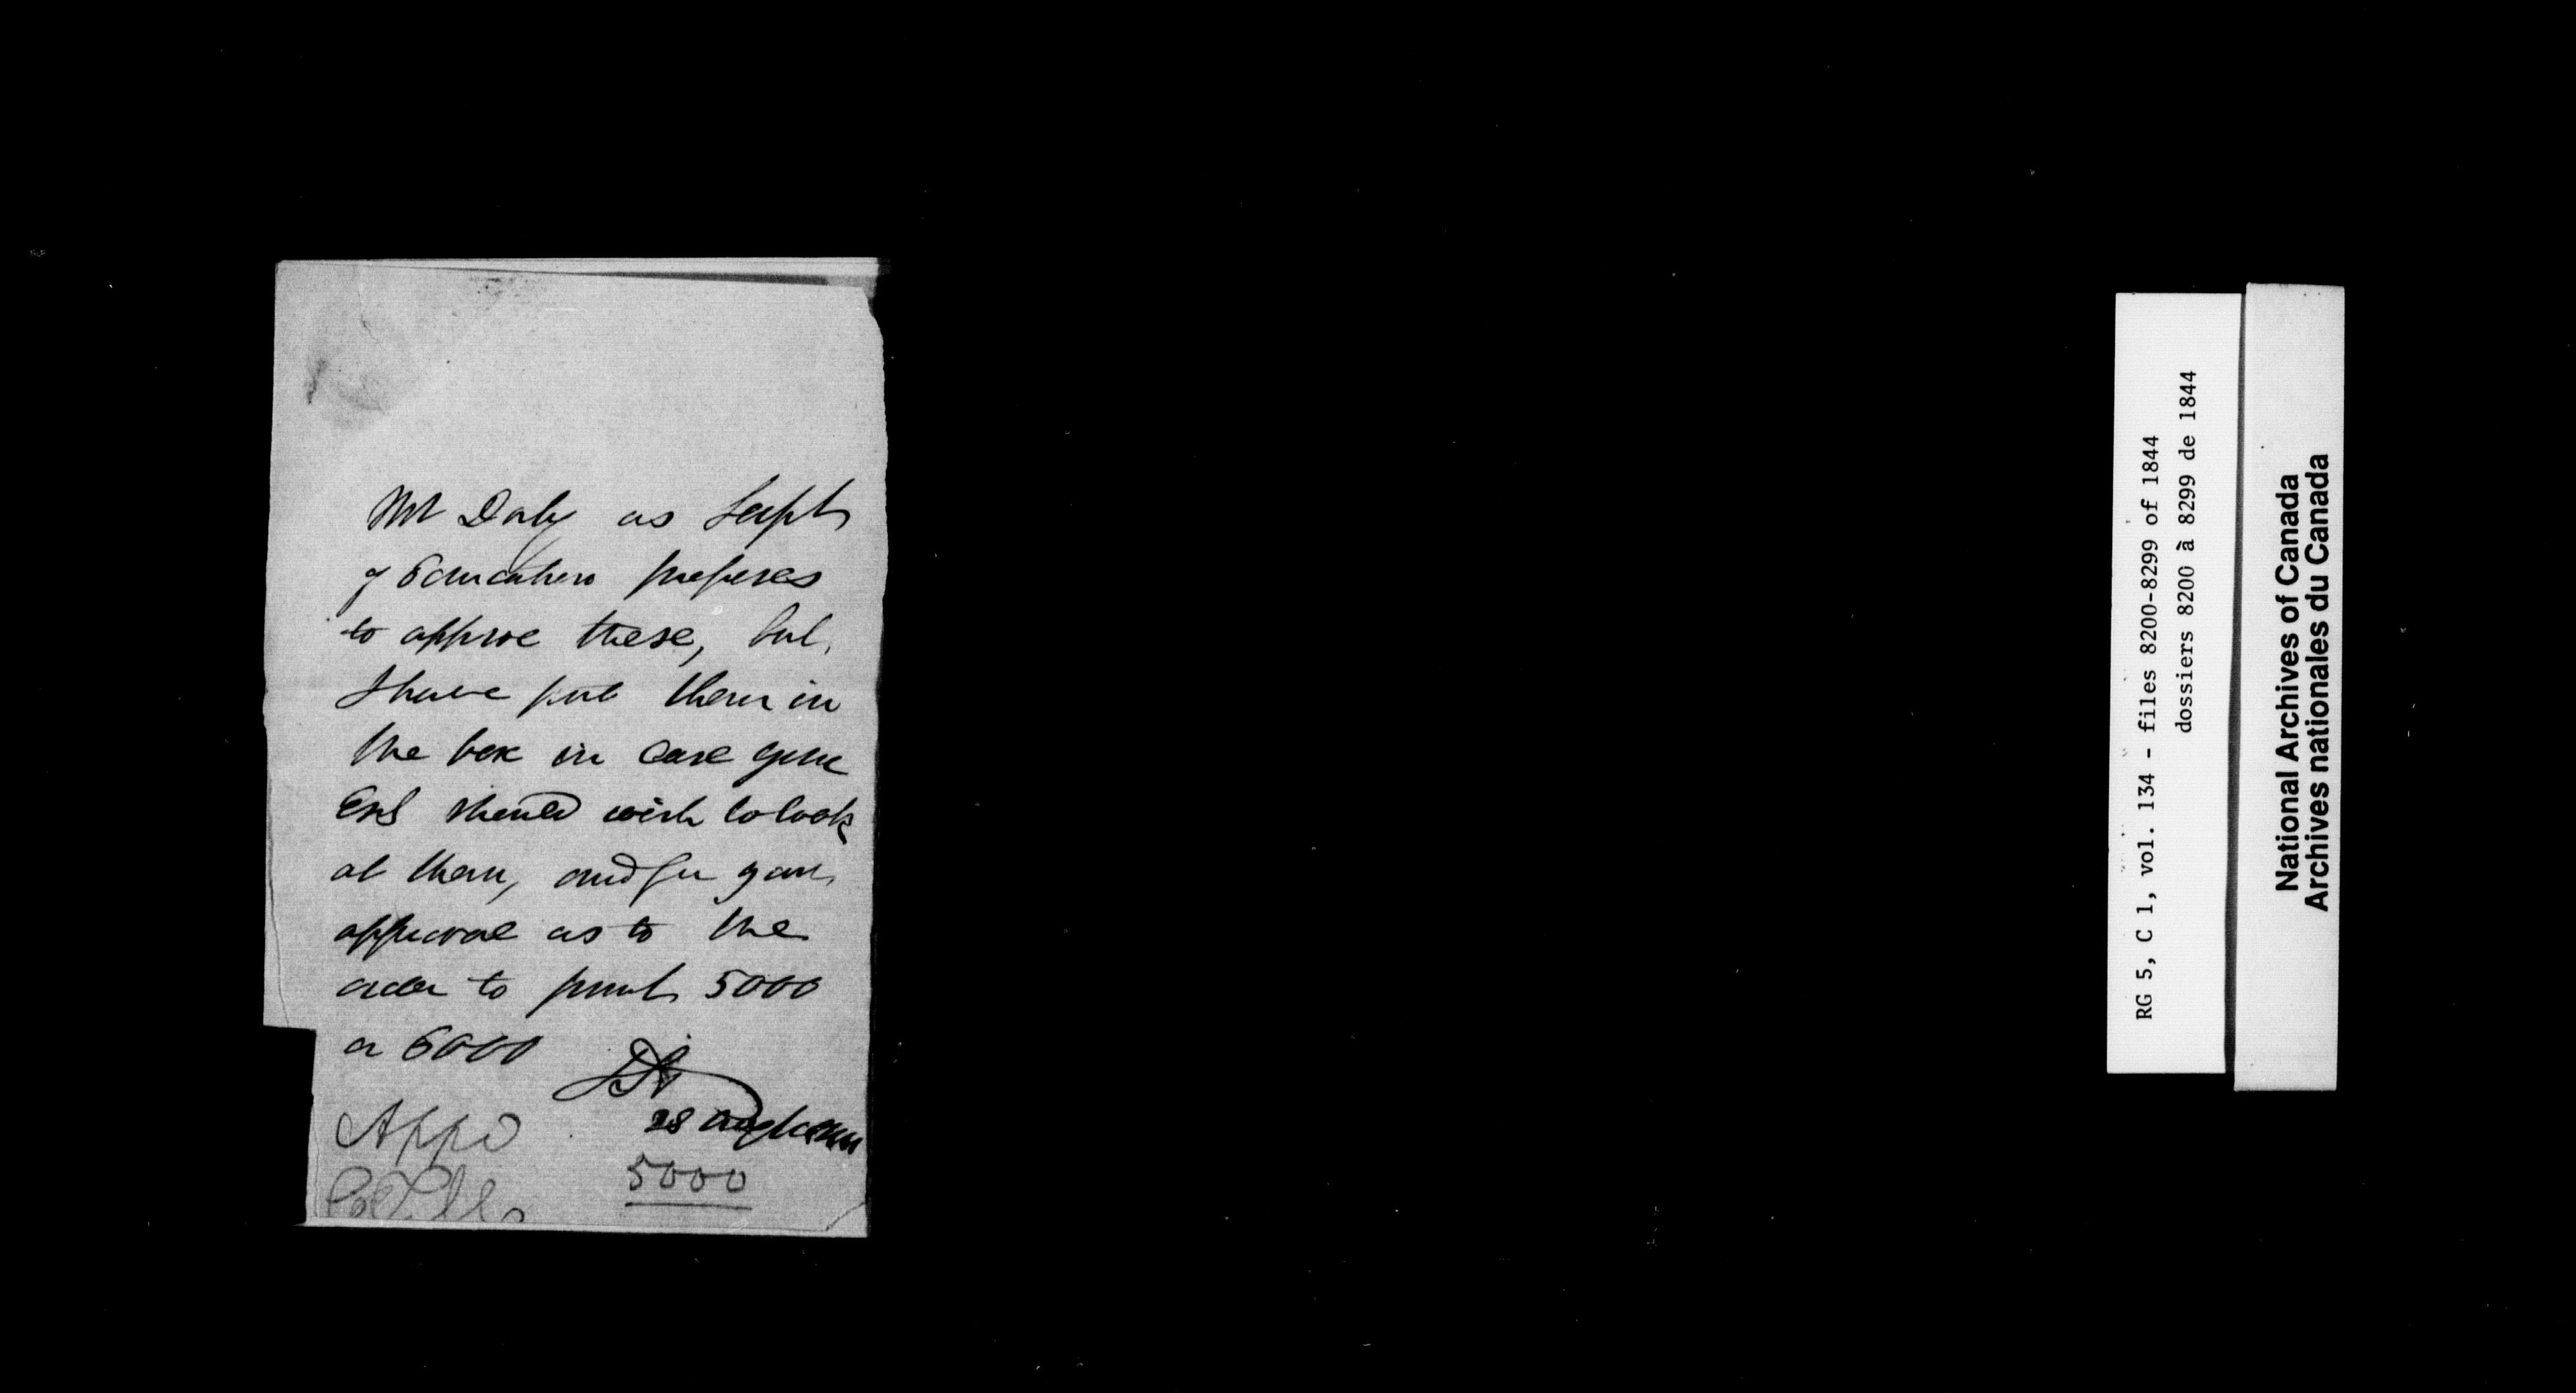 Mr Daly as Supt
of Education proposes
to approve these, but
I have put them in
the box in case your
Exl should wish to look
at them, and for your
approval as to the
order to print 5000
or 6000
28 Augt
Appd
5000
RG 5, C 1, vol. 134 - files 8200-8299 of 1844
dossiers 8200 à 8299 de 1844
National Archives of Canada
Archives nationales du Canada